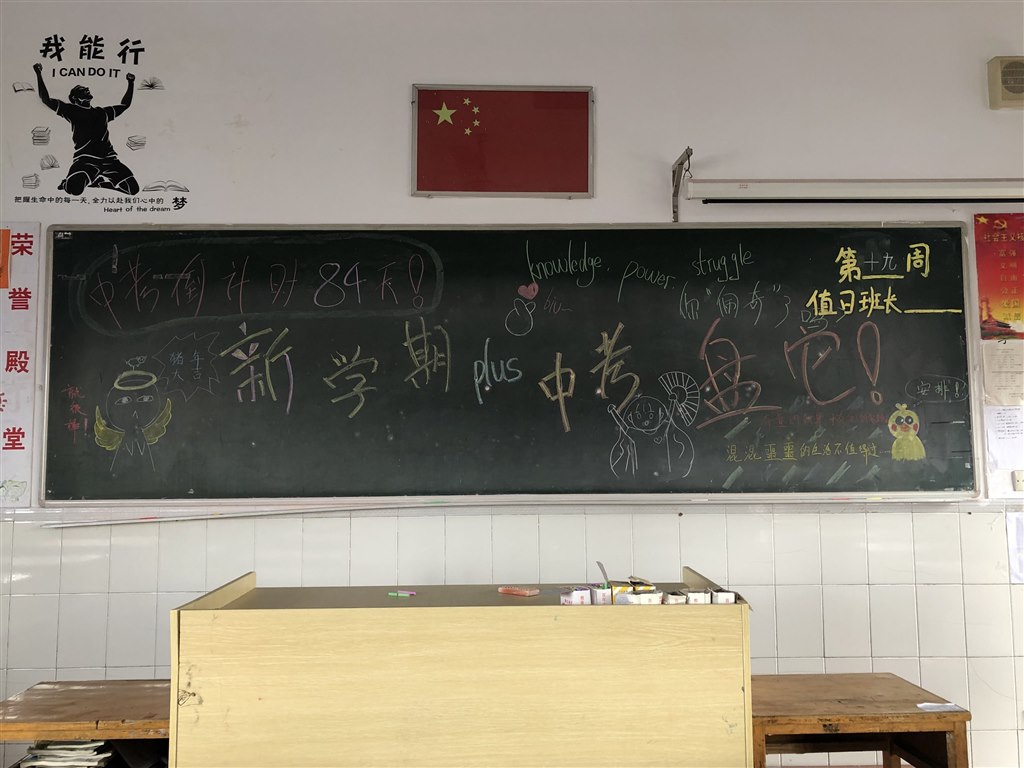 我能行
I CAN DO IT
把握生命中的每一天,全力以赴我们心中的 梦
Heart of the dream
荣誉殿堂
社会主义核
中考倒计时84天!
knowledge. power. struggle
biu~
第十九周
值日班长
你“佩奇”了吗
猪年大吉
新学期 plus 中考 盘它!
安排!
混混噩噩的生活不值得过